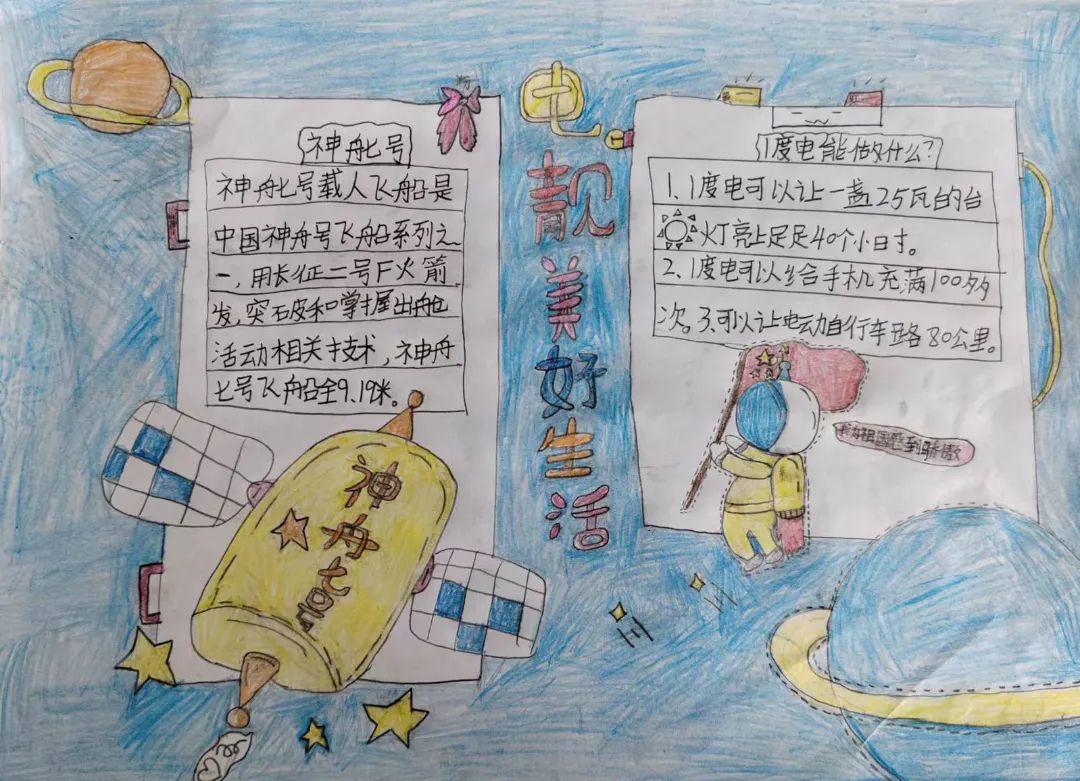 神舟七号
神舟七号载人飞船是
中国神舟号飞船系列之
一，用长征二号F火箭
发，突破和掌握出舱
活动相关技术，神舟
七号飞船全9.19米。
神舟七号
电靓美好生活
1度电能做什么？
1.1度电可以让一盏25瓦的台
灯亮上足足40个小时。
2.1度电可以给手机充满100多
次。3.可以让电动自行车跑80公里。
我为祖国感到骄傲